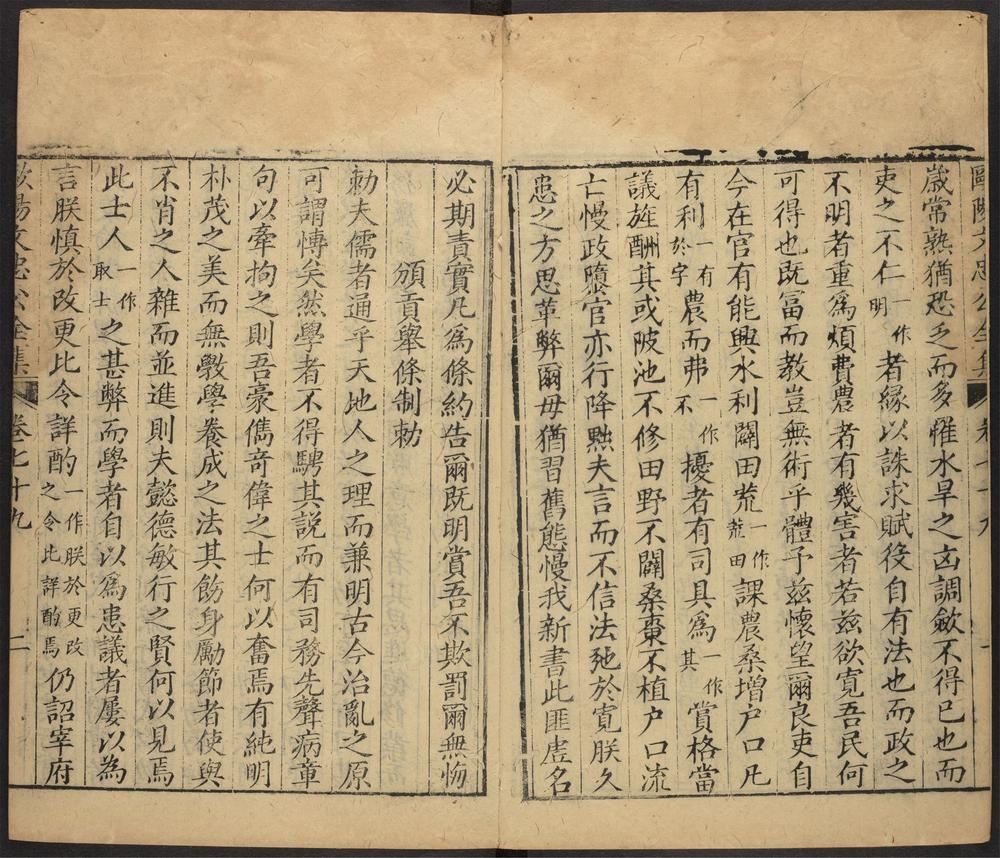 歲常熟猶恐乏而多罹水旱之凶調歛不得已也而
吏之不仁一作明者緣以誅求賦役自有法也而政之
不明者重爲煩費農者有幾害者若兹欲寛吾民何
可得也既富而教豈無術乎體予兹懷望爾良吏自
今在官有能興水利闢田荒一作荒田課農桑増户口凡
有利一有於字農而弗一作不擾者有司具爲一作其賞格當
議旌酬其或陂池不修田野不闢桑棗不植户口流
亡慢政隳官亦行降黜夫言而不信法弛於寛朕久
患之方思革弊爾毋猶習舊態慢我新書此匪虚名
必期責實凡爲條約告爾既明賞吾不欺罰爾無悔
頒貢舉條制勑
勑夫儒者通乎天地人之理而兼明古今治亂之原
可謂博矣然學者不得騁其説而有司務先聲病章
句以牽拘之則吾豪儁竒偉之士何以奮焉有純明
朴茂之美而無斆學養成之法其飭身勵節者使與
不肖之人雜而並進則夫懿德敏行之賢何以見焉
此士人一作取士之甚弊而學者自以爲患議者屢以為
言朕慎於改更比令詳酌一作朕於更改之令比詳酌焉仍詔宰府
歐陽文忠公全集 卷七十九 二